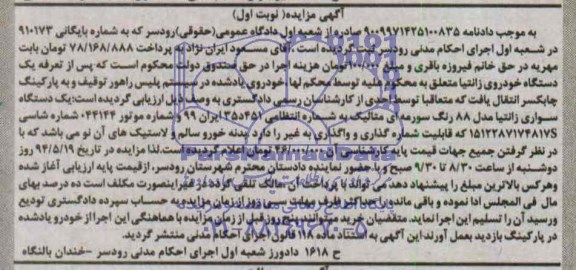 آگهی مزایده( نوبت اول)
به موجب دادنامه ۹۱۰۰۹۹۷۱۴۲۵۱۰۰۸۳۵ صادره از شعبه اول دادگاه عمومی(حقوقی)رودسر که به شماره بایگانی ۹۱۰۱۷۳
در شعبه اول اجرای احکام مدنی رودسر ثبت گردیده است ، آقای مسعود ایران نژاد به پرداخت ۷۸/۱۶۸/۸۸۸ تومان بابت
مهریه در حق خانم فیروزه باقری و مبلغ تومان هزینه اجرا در حق صندوق دولت محکوم است که پس از تعرفه یک
دستگاه خودروی زانتیا متعلق به محکوم علیه توسط محکم لها خودروی یادشده در سیستم پلیس راهور توقیف و به پارکینگ
چابکسر انتقال یافت که متعاقبا توسط احدی از کارشناسان رسمی دادگستری به وصف ذیل ارزیابی گردیده است:یک دستگاه
سواری زانتیا مدل ۸۸ رنگ سورمه ای متالیک به شماره انتظامی ۴۵۱د۳۵ ایران ۹۹ و شماره موتور ۰۴۴۱۴۴ شماره شاسی
S۱۵۱۲۲۸۷۱۷۴۸۱۷ که قابلیت شماره گذاری و واگذاری به غیر را دارد بدنه خودرو سالم و لاستیک های آن نو می باشد که با
در نظر گرفتن جمیع جهات قیمت پایه کارشناسی آن ۴۶/۰۰۰/۰۰۰ تومان اعلام گردیده است.لذا مزایده در تاریخ ۹۴/۵/۱۹ روز
دوشنبه از ساعت ۸/۳۰ تا ۹/۳۰ صبح و با حضور نماینده دادستان محترم شهرستان رودسر، ازقیمت پایه ارزیابی آغاز شده
وهرکس بالاترین مبلغ را پیشنهاد دهد می تواند با پرداخت آن مالک تلقی گردد در غیراینصورت مکلف است ده درصد بهای
مال فی المجلس ادا نموده و باقی مانده را حداکثر ظرف مهلت سی روز از زمان مزایده به حساب سپرده دادگستری تودیع
ورسید آن را تسلیم این اجرا نماید. متقضیان خرید میتوانند پنج روز قبل از زمان مزایده با هماهنگی این اجرا از خودرو یادشده
در پارکینگ بازدید بعمل آورند این آگهی به استناد ماده ۱۱۸ قانون اجرای احکام مدنی منتشر گردید.
ح ۱۶۱۸ دادورز شعبه اول اجرای احکام مدنی رودسر –خندان بالنگاه